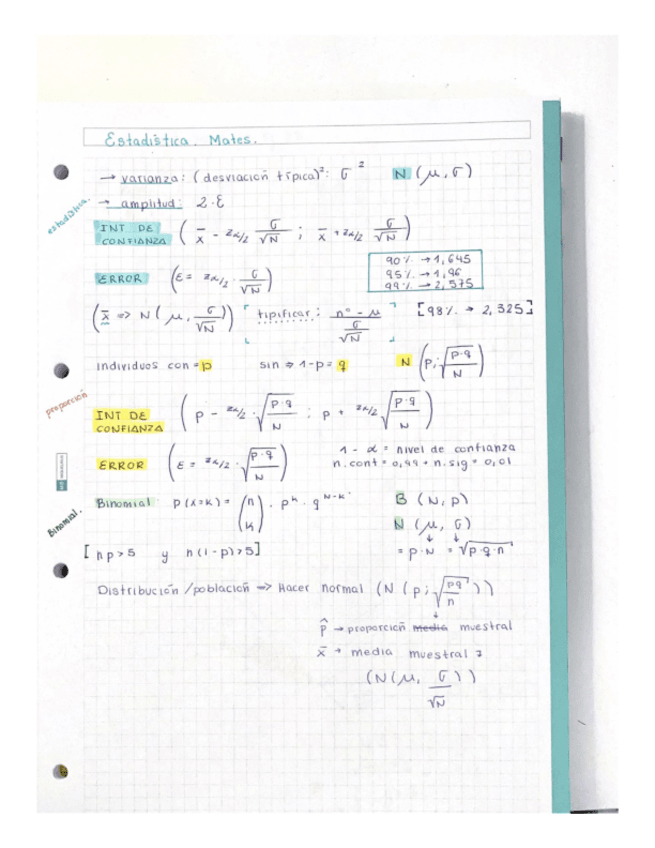 Estadística. Mates.
→ varianza: (desviación típica)²: σ² N (μ, σ)
estadística.
→ amplitud: 2·ε
INT DE CONFIANZA ( x̄ - zα/2 σ/√N ; x̄ + zα/2 σ/√N )
90% → 1,645
95% → 1,96
99% → 2,575
ERROR ( ε = zα/2 · σ/√N )
( x̄ => N ( μ, σ/√N ) ) [ tipificar: nº - μ / σ/√N ] [98% → 2,325]
individuos con = p sin => 1-p = q N ( p; √p·q/N )
proporción
INT DE CONFIANZA ( p - zα/2 · √p·q/N ; p + zα/2 √p·q/N )
ERROR ( ε = zα/2 · √p·q/N ) 1 - α = nivel de confianza
n.conf = 0,99 → n.sig = 0,01
Binomial P(x=k) = (n k) · pᵏ · q^N-k B (N, p)
Binomial.
N (μ, σ)
↓ ↓
[ np>5 y n(1-p)>5] = p·N = √p·q·n
Distribución/población => Hacer normal (N (p; √pq/n))
↓
p̂ → proporción media muestral
x̄ → media muestral
(N(μ, σ/√N))